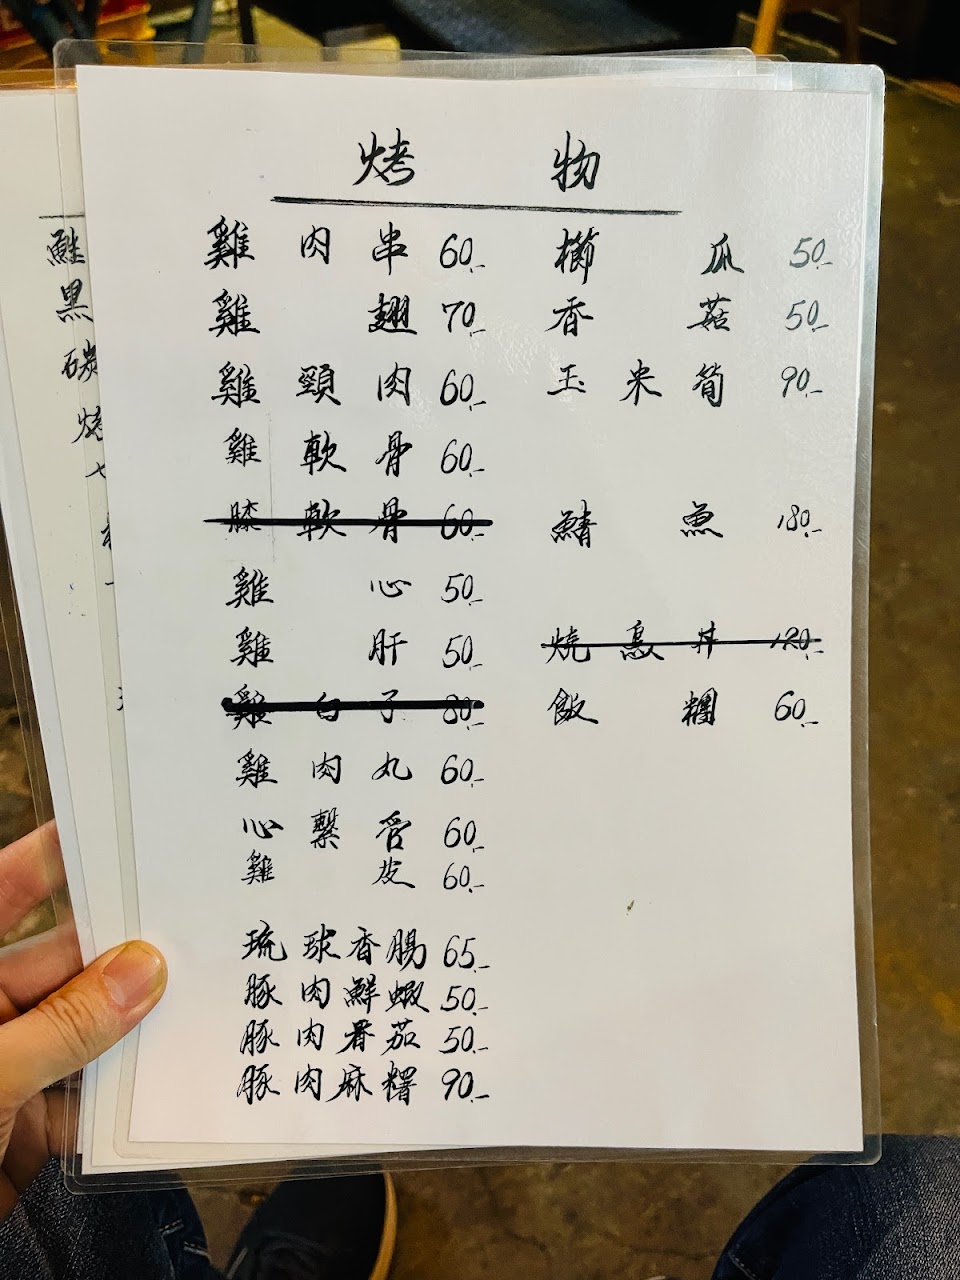 烤物
雞肉串 60.-
雞翅 70.-
雞頸肉 60.-
雞軟骨 60.-
膝軟骨 60.-
雞心 50.-
雞肝 50.-
雞白子 80.-
雞肉丸 60.-
心繫管 60.-
雞皮 60.-
琉球香腸 65.-
豚肉鮮蝦 50.-
豚肉番茄 50.-
豚肉麻糬 90.-
櫛瓜 50.-
香菇 50.-
玉米筍 90.-
鯖魚 180.-
燒鳥丼 120.-
飯糰 60.-
鮭
黑
碳
烤
七